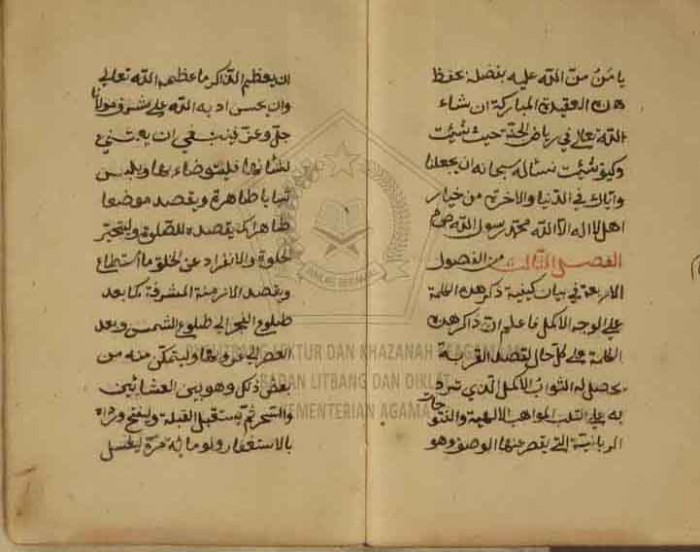 يا من من الله عليه بفضله بحفظ
هذه العقيدة المباركة ان شاء
الله تعالى في رياض الجنة حيث شئت
وكيف شئت نسأله سبحانه ان يجعلنا
واياك في الدنيا والاخرة من خيار
اهل لا اله الا الله محمد رسول الله
الفصل الثالث من الفصول
الاربعة في بيان كيفية ذكر هذه الكلمة
على الوجه الاكمل فاعلم ان ذاكر هذه
الكلمة على كل حال بقصد القربة
يحصل له الثواب الاكمل الذي ترد
به على القلب المواهب الالهية والفتوحات
الربانية التي يقصر عنها الوصف وهو
ان يعظم الذاكر ما عظم الله تعالى
وان يحسن ادبه الله على شرف مولانا
جل وعز فينبغي ان يعتني
بشأنها فليتوضاء بها ويلبس
ثيابا طاهرة ويقصد موضعا
طاهرا كما يقصده للصلوة وليتخير
الخلوة والانفراد عن الخلق ما استطاع
ويقصد الازمنة المشرفة كما بعد
طلوع الفجر الى طلوع الشمس وبعد
العصر الى غروبها وليتمكن منه من
بعض ذلك وهو بين العشائين
والسحر ثم يستقبل القبلة ويفتح ورده
بالاستغفار ولو مائة مرة ليغسل
PUSLITBANG LEKTUR DAN KHAZANAH KEAGAMAAN
BADAN LITBANG DAN DIKLAT
KEMENTERIAN AGAMA
IKHLAS BERAMAL